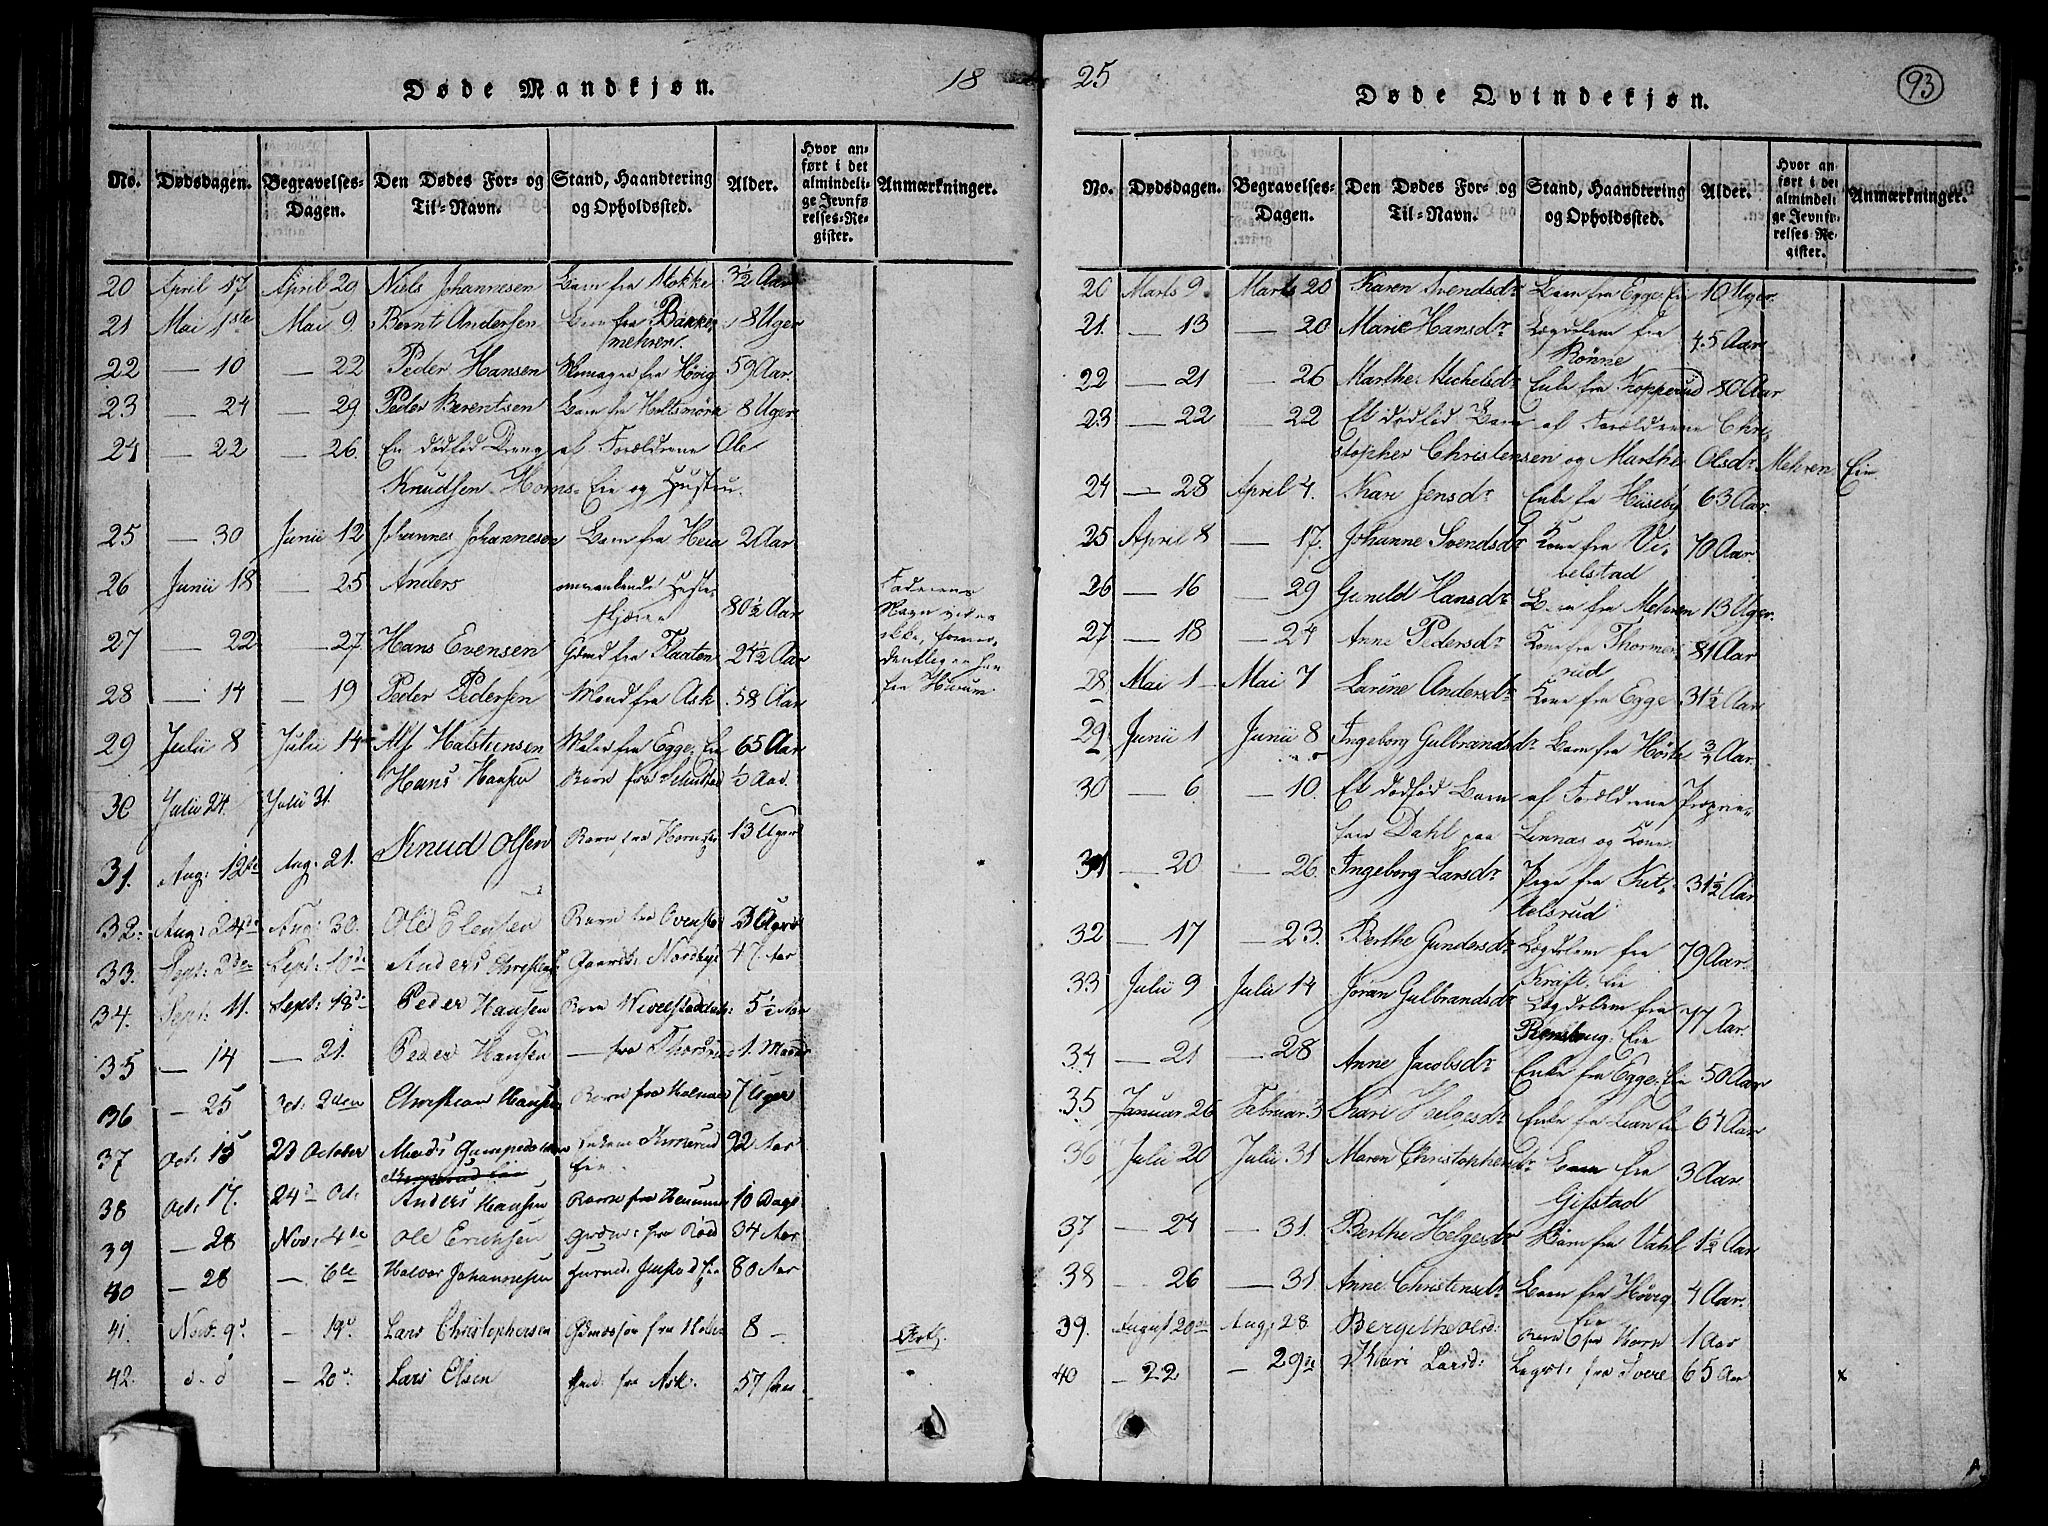 Døde Mandkjøn. 18
No. Dødsdagen. Begravelses-Dagen. Den Dødes For- og Til-Navn. Stand, Haandtering og Opholdssted. Alder. Hvor anført i det almindelige Jevnførelses-Register. Anmærkninger.
20 April 17 April 20 Niels Johannesen Barn fra Stokke 3½ Aar
21 Mai 1ste Mai 9. Bernt Andersen Barn fra Bakke, 8 Uger
mehren.
22 — 10 — 22 Peder Hansen fra Høvig 59 Aar.
23 — 24 — 29 Peder Berentsen Barn fra Holtsmørk 8 Uger
24 — 22 — 26. En dødfød Dreng af Forældrene Ole
Knudsen Horns-Eie og Hustru.
25 — 30 Junii 12 Johannes Johannesen Barn fra Heia 2 Aar
26 Junii 18 — 25 Anders omvankende Heste-
skjærer 80½ Aar
Faderens
Navn vides
ikke, formo-
dentlig er han
fra Hurum
27 — 22 — 27 Hans Evensen Gdmd fra Flaaten 24½ Aar
28 — 14 — 19 Peder Pedersen Mand fra Ask 58 Aar
29 Julii 8 Julii 14 Alf Halstensen Maler fra Egge-Eie 65 Aar
30 Julii 24. Julii 31. Hans Hansen Barn fra
31. Aug: 12te Aug: 21. Knud Olsen Barn fra 13 Uger
32. Aug: 24de Aug: 30. Ole Barn fra 3 Aar
33. Sept: 2den Sept: 10de Anders Christens: Nordbye 47 Aar
34. Sept: 11. Sept: 18de Peder Hansen Barn 5½ Aar
35 — 14 — 21. Peder Hansen — fra 1. Maaned
36 — 25 Oct: 2den Christian Hansen Barn fra 7 Uger
37 Oct: 15 23 October 92 Aar
Eie
38 Oct: 17. 24de Oct: Anders Hansen Barn fra 10 Dage
39 — 28 Nov: 4de Ole Erichsen fra Røed 34 Aar
40 — 28 — 6te Halvor Johannesen 80 Aar
41. Nov: 9d — 19d Lars Christophersen fra 8 —
42. d. d — 20d. Lars Olsen fra Ask. 57
25 Døde Qvindekjøn. 93
No. Dødsdagen. Begravelses-Dagen. Den Dødes For- og Til-Navn. Stand, Haandtering og Opholdssted. Alder. Hvor anført i det almindelige Jevnførelses-Register. Anmærkninger.
20 Marts 9. Marts 20 Karen Svendsdr Barn fra Egge-Eie 10 Uger
21. — 13 — 20 Marie Hansdr Lægdslem fra 45 Aar
Rønne
22 — 21 — 26 Marthe Michelsdr Enke fra Kopperud 80 Aar
23 — 22 — 22 Et dødfød Barn af Forældrene Chri-
stopher Christensen og Marthe Olsdr Mehren Eie
24 — 28 April 4. Kari Jensdr Enke fra Huseby 63 Aar.
25 April 8 — 17. Johanne Svendsdr Kone fra Vi- 70 Aar.
belstad
26 — 16 — 29 Gunild Hansdr Barn fra Mehren 13 Uger.
27 — 18 — 24 Anne Pedersdr Kone fra Thorme- 81 Aar
rud
28 Mai 1 — Mai 7 Larene Andersdr Kone fra Egge 31½ Aar
29 Junii 1 Junii 8 Ingeborg Gulbrandsdr Barn fra 3/2 Aar.
30 — 6 — 10. Et dødfød Barn af Forældrene Proprie-
tair Dahl paa Linnæs og Kone.
31 — 20 — 26. Ingeborg Larsdr Pige fra Kit- 31½ Aar
telsrud
32 — 17 — 23. Berthe Gundersdr Lægdslem fra 79 Aar.
Kraft-Eie
33 Julii 9 Julii 14 Joran Gulbrandsdr Lægdslem fra 77 Aar.
Eie
34 — 21 — 28 Anne Jacobsdr Enke fra Egge-Eie 50 Aar
35 Januar 26 Februar 3 Kari Helgesdr Enke fra Lian Eie 64 Aar
36 Julii 20 Julii 31 Maren Christophersdr Barn fra 3 Aar
Gifstad
37 — 24 — 31. Berthe Helgesdr Barn fra Vahl 1½ Aar
38 — 26 — 31 Anne Christensdr Barn fra Høvig 4 Aar.
Eie
39. August 20de Aug: 28 Bergethe Olsd: Barn fra Horn 1 Aar
40 — 22 — 29de Kari Larsd: Lægsl: fra 65 Aar x